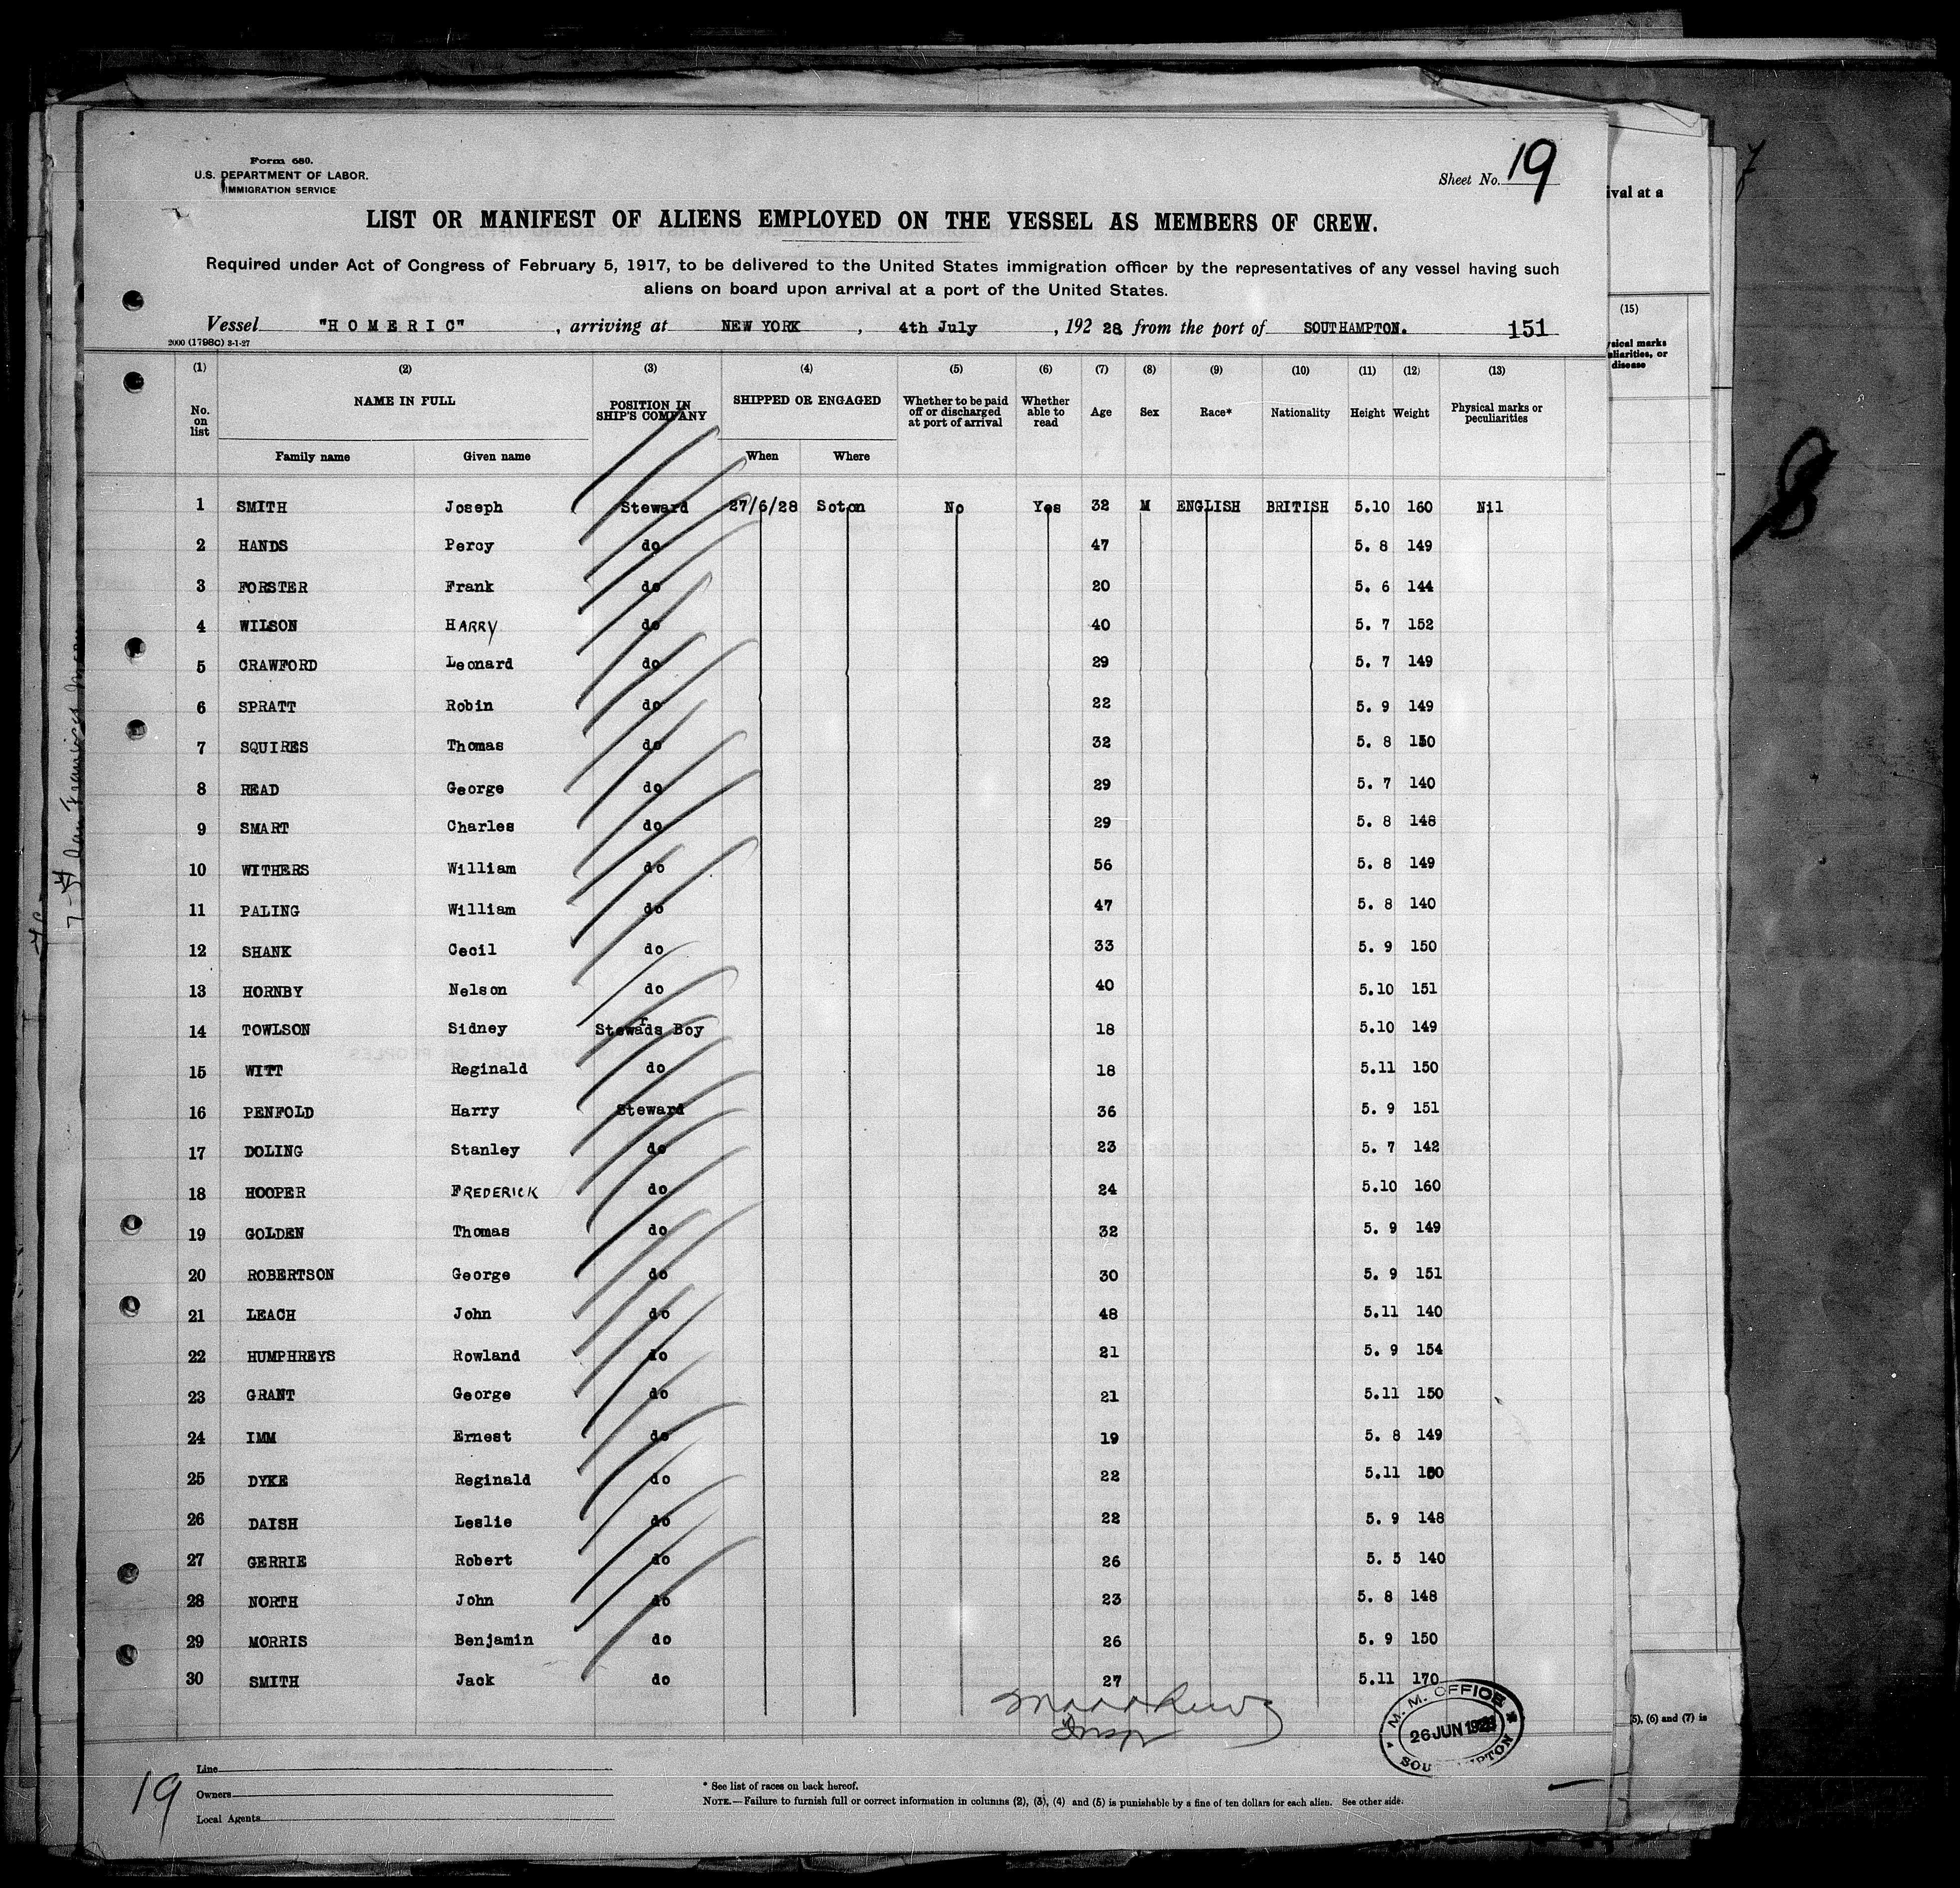 Form 680.
U.S. DEPARTMENT OF LABOR.
IMMIGRATION SERVICE
Sheet No. 19
LIST OR MANIFEST OF ALIENS EMPLOYED ON THE VESSEL AS MEMBERS OF CREW.
Required under Act of Congress of February 5, 1917, to be delivered to the United States immigration officer by the representatives of any vessel having such
aliens on board upon arrival at a port of the United States.
Vessel "HOMERIC", arriving at NEW YORK, 4th July, 192 28 from the port of SOUTHAMPTON. 151
2000 (1798C) 3-1-27
(1) (2) (3) (4) (5) (6) (7) (8) (9) (10) (11) (12) (13)
No. on list NAME IN FULL POSITION IN SHIP'S COMPANY SHIPPED OR ENGAGED Whether to be paid off or discharged at port of arrival Whether able to read Age Sex Race* Nationality Height Weight Physical marks or peculiarities
Family name Given name When Where
1 SMITH Joseph Steward 27/6/28 Soton No Yes 32 M ENGLISH BRITISH 5.10 160 Nil
2 HANDS Percy do 47 5. 8 149
3 FORSTER Frank do 20 5. 6 144
4 WILSON HARRY do 40 5. 7 152
5 CRAWFORD Leonard do 29 5. 7 149
6 SPRATT Robin do 22 5. 9 149
7 SQUIRES Thomas do 32 5. 8 150
8 READ George do 29 5. 7 140
9 SMART Charles do 29 5. 8 148
10 WITHERS William do 56 5. 8 149
11 PALING William do 47 5. 8 140
12 SHANK Cecil do 33 5. 9 150
13 HORNBY Nelson do 40 5.10 151
14 TOWLSON Sidney Stewards Boy 18 5.10 149
15 WITT Reginald do 18 5.11 150
16 PENFOLD Harry Steward 36 5. 9 151
17 DOLING Stanley do 23 5. 7 142
18 HOOPER FREDERICK do 24 5.10 160
19 GOLDEN Thomas do 32 5. 9 149
20 ROBERTSON George do 30 5. 9 151
21 LEACH John do 48 5.11 140
22 HUMPHREYS Rowland do 21 5. 9 154
23 GRANT George do 21 5.11 150
24 IMM Ernest do 19 5. 8 149
25 DYKE Reginald do 22 5.11 150
26 DAISH Leslie do 22 5. 9 148
27 GERRIE Robert do 26 5. 5 140
28 NORTH John do 23 5. 8 148
29 MORRIS Benjamin do 26 5. 9 150
30 SMITH Jack do 27 5.11 170
Insp
M. M. OFFICE
26 JUN 1928
Line
Owners
Local Agents
19
* See list of races on back hereof.
NOTE.—Failure to furnish full or correct information in columns (2), (3), (4) and (5) is punishable by a fine of ten dollars for each alien. See other side.
ival at a
(15)
sical marks
liarities, or
disease
5), (6) and (7) is
8